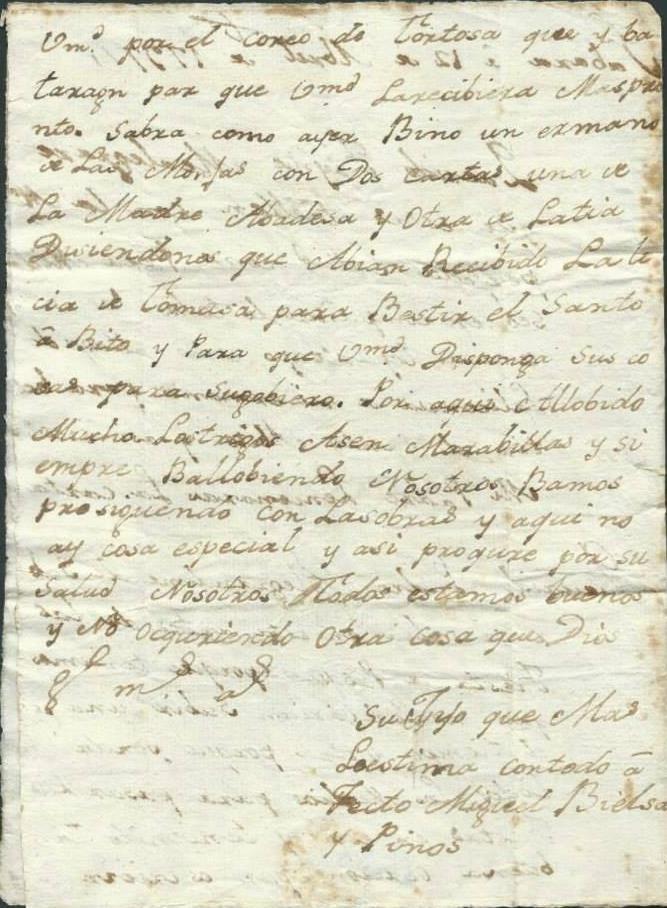 Vmd. por el coreo de Tortosa que y ba
taragn par que Vmd Larecibiera Maspro
nto. Sabra como ayer Bino un ermano
de Las Monjas con Dos cartas una de
La Madre Abadesa y Otra de Latia
Disiendonos que Abian Recibido La li
cia de Tomasa para Bestir el Santo
â Bito y Para que Vmd Disponga Sus co
sas para sugobiero. Por aqui Allobido
Mucho Lostrigos Asen Marabillas y si
empre Ballobiendo Nosotros Bamos
prosiguendo con Lasobras y aqui no
ay cosa especial y asi progure por su
Salud Nosotros Todos estamos buenos
y No ocquriendo Otra Cosa que Dios
g m a
Su Yjo que Mas
Loestima contodo â
Fecto Miguel Bielsa
y Pinos